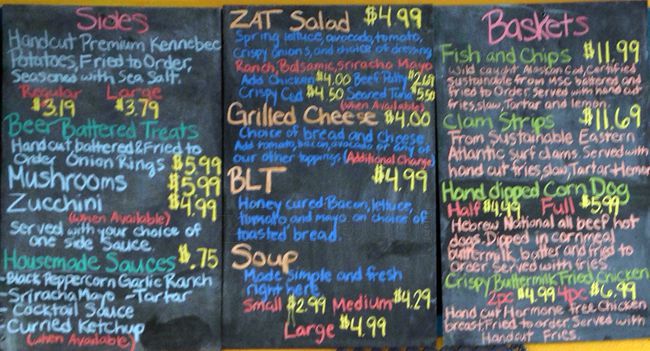 Sides
Handcut Premium Kennebec
Potatoes, Fried to Order,
Seasoned with Sea Salt.
Regular Large
$3.19 $3.79
Beer Battered Treats
Handcut, battered & Fried to
Order Onion Rings $5.99
Mushrooms $5.99
Zucchini $4.99
(when Available)
Served with your choice of
one side Sauce.
Housemade Sauces $.75
-Black Peppercorn Garlic Ranch
-Sriracha Mayo -Tartar
-Cocktail Sauce
-Curried Ketchup
(when Available)
ZAT Salad $4.99
Spring lettuce, avocado, tomato,
Crispy Onions, and choice of dressing
Ranch, Balsamic, Sriracha Mayo
Add Chicken $4.00 Beef Patty $2.69
Crispy Cod $4.50 Seared Tuna $5.50
(When Available)
Grilled Cheese $4.00
Choice of bread and cheese
Add tomato, bacon, avocado or any of
our other toppings (Additional Charge)
BLT $4.99
Honey cured Bacon, lettuce,
tomato and mayo on choice of
toasted bread.
Soup
Made simple and fresh
right here
Small $2.99 Medium $4.29
Large $4.99
Baskets
Fish and Chips $11.99
Wild caught Alaskan Cod, Certified
Sustainable from MSC battered and
fried to Order. Served with hand cut
fries, slaw, Tartar and lemon.
Clam Strips $11.69
From Sustainable Eastern
Atlantic surf clams. Served with
hand cut fries, slaw, Tartar + lemon
Hand dipped Corn Dog
Half $4.99 Full $5.99
Hebrew National all beef hot
dogs. Dipped in cornmeal
buttermilk batter and fried to
order. Served with fries
Crispy Buttermilk Fried Chicken
2pc $4.99 4pc $6.99
Hand cut Hormone free Chicken
breast, Fried to order. Served with
Handcut Fries.